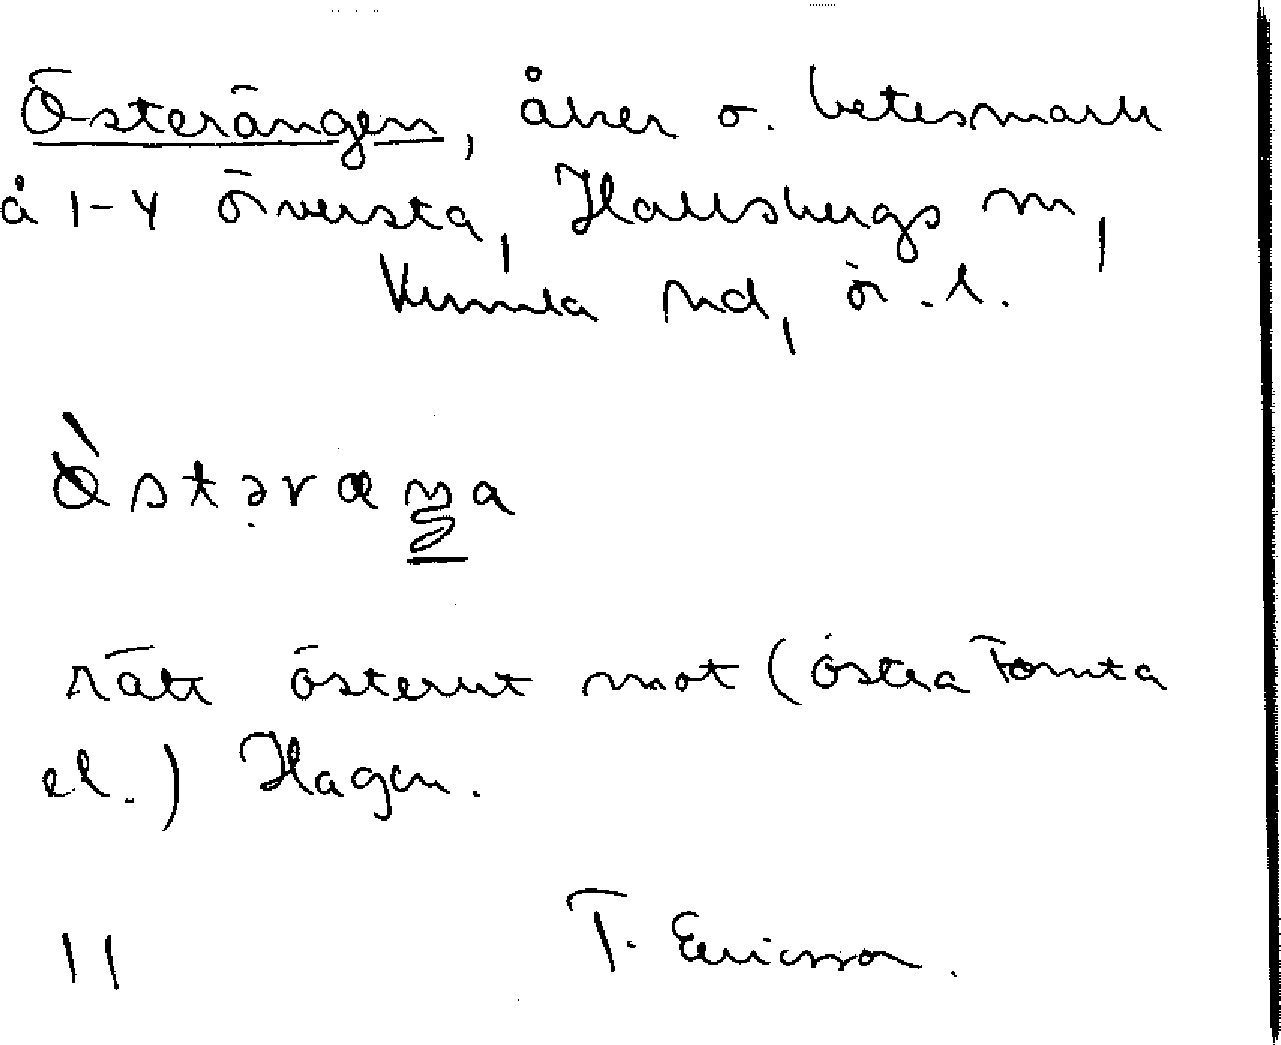 Österängen, åker o. betesmark
å 1-4 Översta, Hallsbergs sn,
Kumla hd, Ör. l.
rätt österut mot (östra Tomta
el.) Hagen.
11 T. Ericsson.